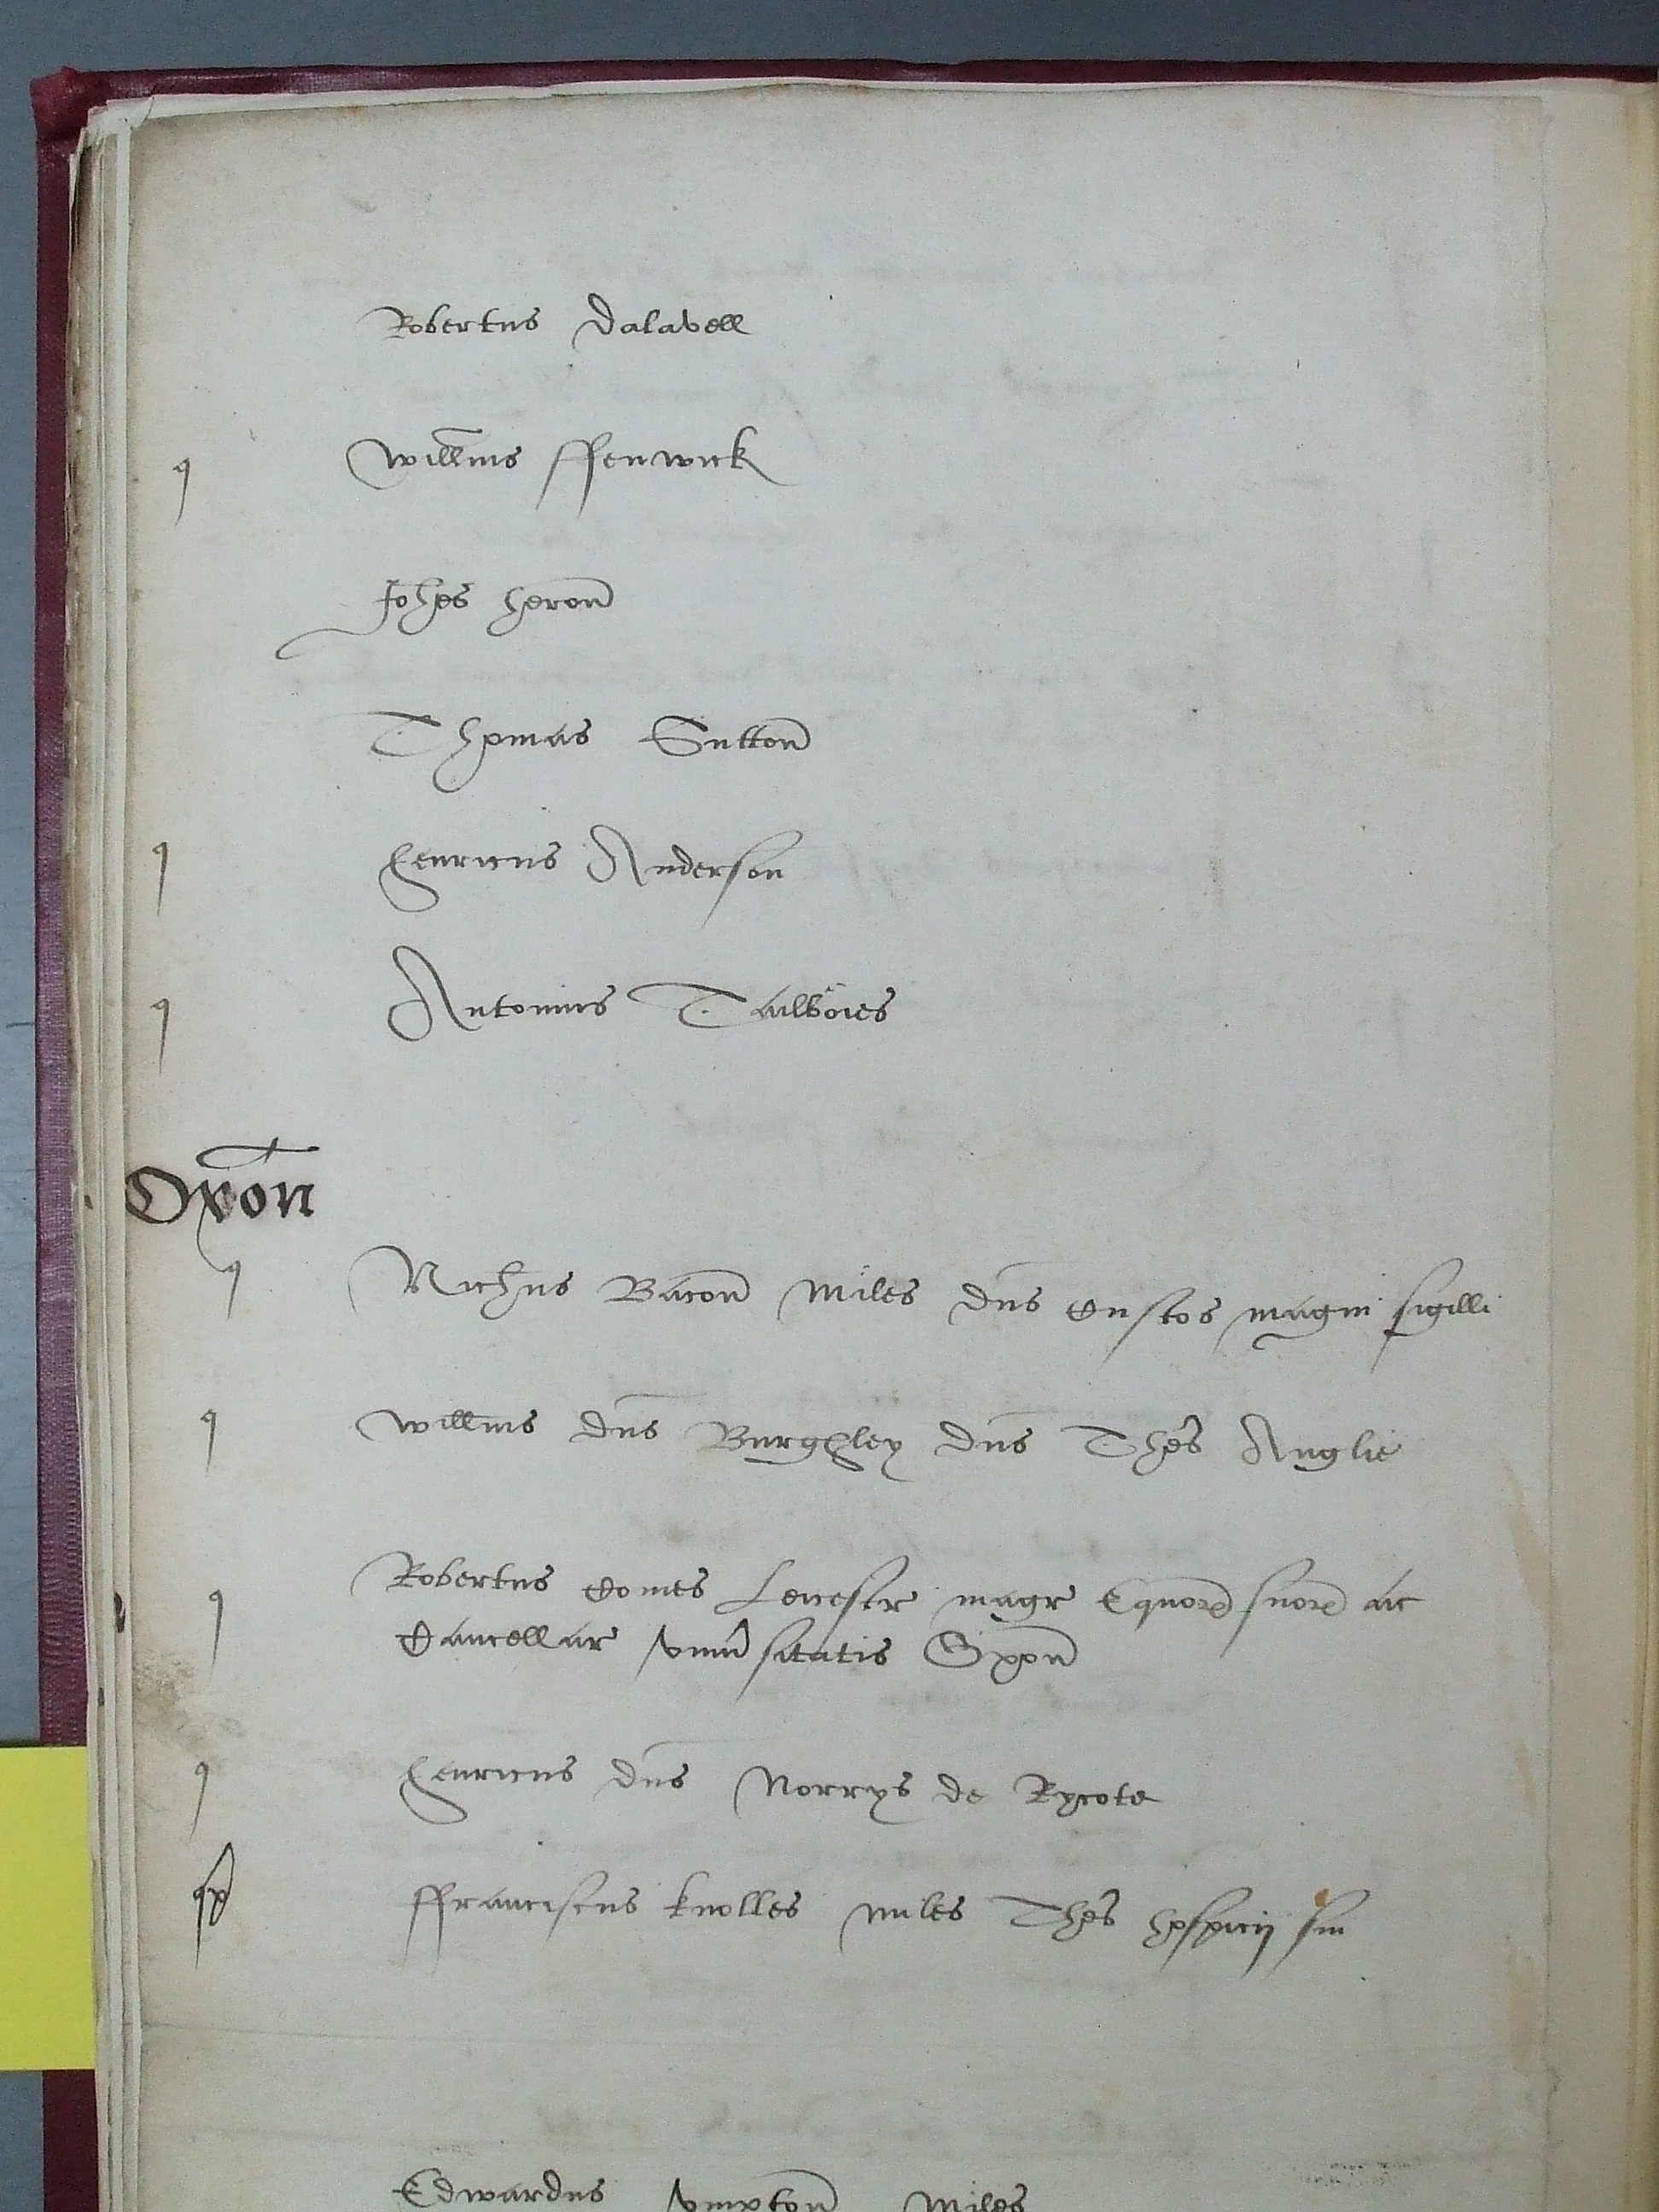 Robertus Dalavell
q Willm̄us ffenwick
Joh̄es Heron̄
Thomas Sutton̄
q Henricus Anderson
q Antonius Tailbois
Oxon̄
q Nich̄us Bacon̄ Miles dn̄s Custos magni sigilli
q Willm̄us dn̄s Burghley dn̄s Thes̄ Anglie
q Robertus Comes Leicestr magr Equor suor ac
Cancellar vniu̾sitatis Oxon̄
q Henricus dn̄s Norrys de Rycote
ffranciscus knolles miles Thes̄ hospicij sui
Edwardus vmpton̄ Miles